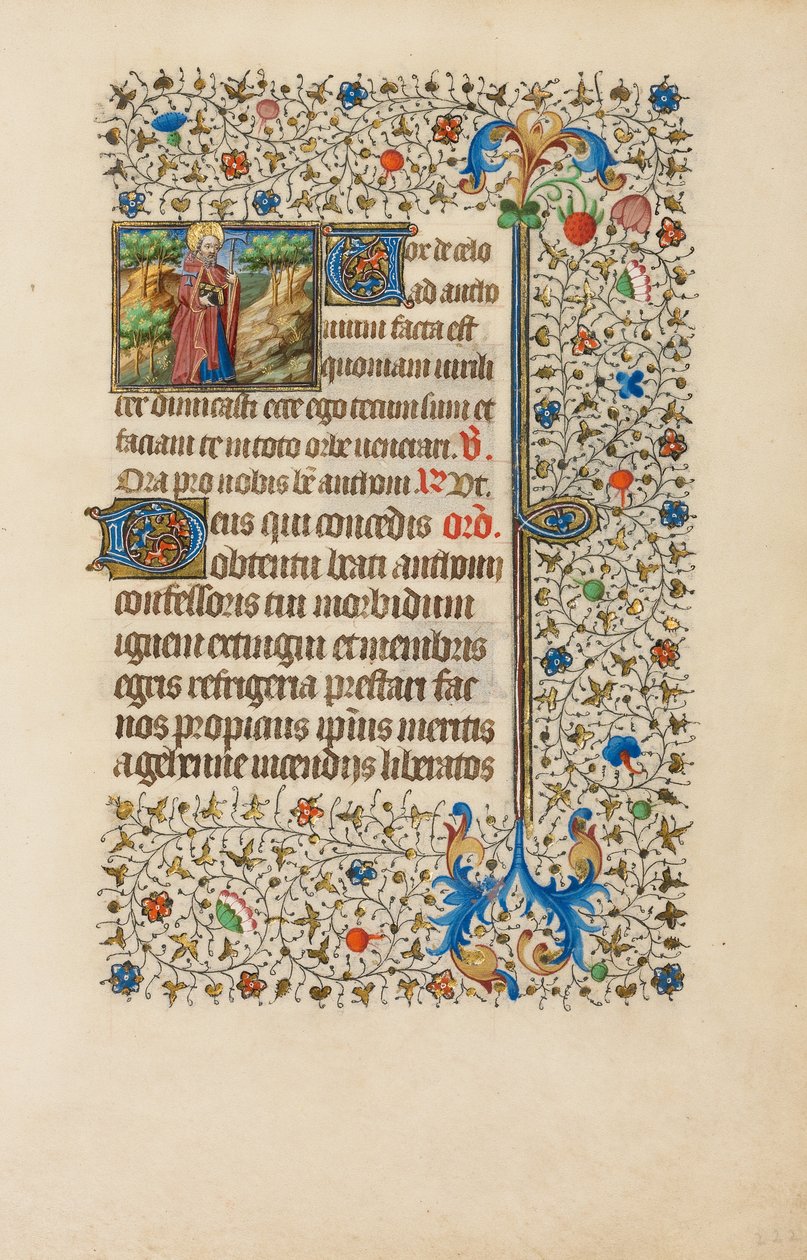 Vox de celo
ad antho
nium facta est
quoniam uirili
ter dimicasti ecce ego tecum sum et
faciam te in toto orbe uenerari. V̄.
Ora pro nobis bē anthoni. R Vt.
Deus qui concedis orō.
obtentu beati anthonii
confessoris tui morbidum
ignem extingui et membris
egris refrigeria prestari fac
nos propicius ip̄ius meritis
a gehenne incendijs liberatos
222